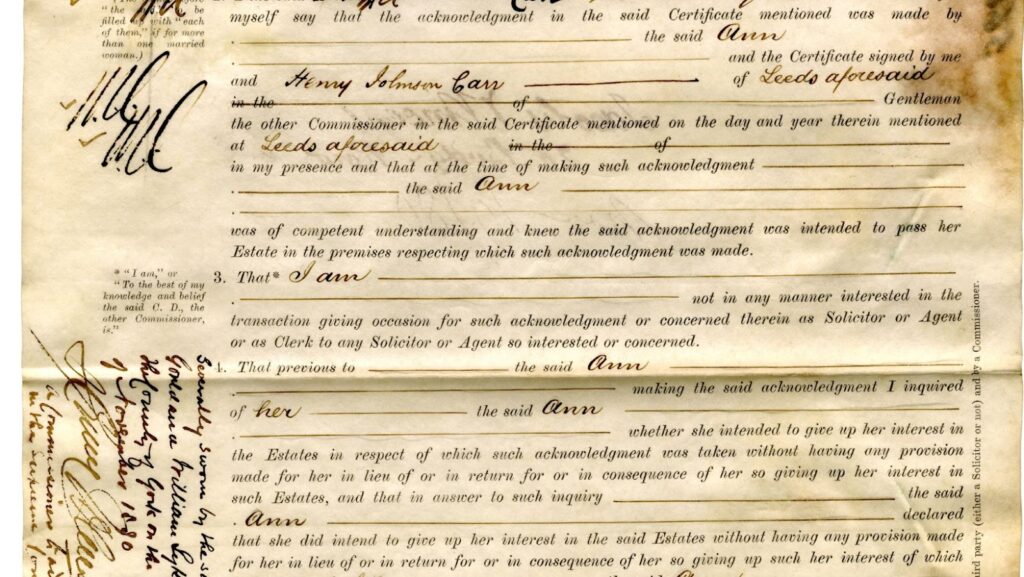 myself say that the acknowledgment in the said Certificate mentioned was made by
the said Ann
and the Certificate signed by me
and Henry Johnson Carr of Leeds aforesaid
in the of Gentleman
the other Commissioner in the said Certificate mentioned on the day and year therein mentioned
at Leeds aforesaid in the of
in my presence and that at the time of making such acknowledgment
the said Ann
was of competent understanding and knew the said acknowledgment was intended to pass her
Estate in the premises respecting which such acknowledgment was made.
3. That* I am
not in any manner interested in the
transaction giving occasion for such acknowledgment or concerned therein as Solicitor or Agent
or as Clerk to any Solicitor or Agent so interested or concerned.
4. That previous to the said Ann
making the said acknowledgment I inquired
of her the said Ann
whether she intended to give up her interest in
the Estates in respect of which such acknowledgment was taken without having any provision
made for her in lieu of or in return for or in consequence of her so giving up her interest in
such Estates, and that in answer to such inquiry the said
Ann declared
that she did intend to give up her interest in the said Estates without having any provision made
for her in lieu of or in return for or in consequence of her so giving up such her interest of which
be
filled up with "each
of them," if for more
than one married
woman.)
* "I am," or
"To the best of my
knowledge and belief
the said C. D., the
other Commissioner,
is."
Severally sworn by the
and William
the County of York on the
November 1880
a Commissioner
in the Supreme
third party (either a Solicitor or not) and by a Commissioner.